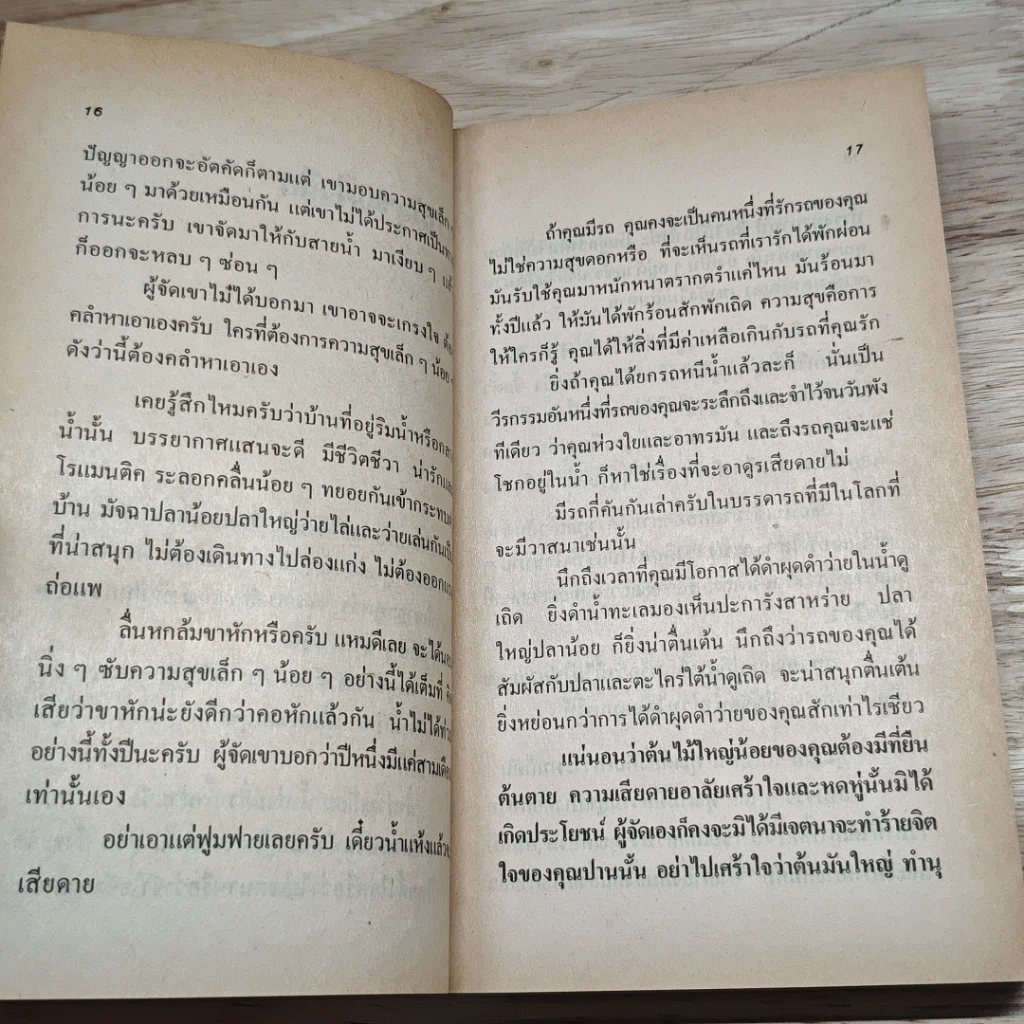 16
ปัญญาออกจะอัตคัดก็ตามแต่ เขามอบความสุขเล็ก
น้อย ๆ มาด้วยเหมือนกัน แต่เขาไม่ได้ประกาศเป็น
การนะครับ เขาจัดมาให้กับสายน้ำ มาเงียบ ๆ
ก็ออกจะหลบ ๆ ซ่อน ๆ
ผู้จัดเขาไม่ได้บอกมา เขาอาจจะเกรงใจ
คลำหาเอาเองครับ ใครที่ต้องการความสุขเล็ก ๆ น้อย
ดังว่านี้ต้องคลำหาเอาเอง
เคยรู้สึกไหมครับว่าบ้านที่อยู่ริมน้ำหรือ
น้ำนั้น บรรยากาศแสนจะดี มีชีวิตชีวา น่ารัก
โรแมนติค ระลอกคลื่นน้อย ๆ ทยอยกันเข้ากระทบ
บ้าน มัจฉาปลาน้อยปลาใหญ่ว่ายไล่และว่ายเล่นกัน
ที่น่าสนุก ไม่ต้องเดินทางไปล่องแก่ง ไม่ต้องออก
ถ่อแพ
ลื่นหกล้มขาหักหรือครับ แหมดีเลย จะได้
นิ่ง ๆ ซับความสุขเล็ก ๆ น้อย ๆ อย่างนี้ได้เต็มที่
เสียว่าขาหักน่ะยังดีกว่าคอหักแล้วกัน น้ำไม่ได้
อย่างนี้ทั้งปีนะครับ ผู้จัดเขาบอกว่าปีหนึ่งมีแค่สามเดือน
เท่านั้นเอง
อย่าเอาแต่ฟูมฟายเลยครับ เดี๋ยวน้ำแห้งแล้ว
เสียดาย
17
ถ้าคุณมีรถ คุณคงจะเป็นคนหนึ่งที่รักรถของคุณ
ไม่ใช่ความสุขดอกหรือ ที่จะเห็นรถที่เรารักได้พักผ่อน
มันรับใช้คุณมาหนักหนาตรากตรำแค่ไหน มันร้อนมา
ทั้งปีแล้ว ให้มันได้พักร้อนสักพักเถิด ความสุขคือการ
ให้ใครก็รู้ คุณได้ให้สิ่งที่มีค่าเหลือเกินกับรถที่คุณรัก
ยิ่งถ้าคุณได้ยกรถหนีน้ำแล้วละก็ นั่นเป็น
วีรกรรมอันหนึ่งที่รถของคุณจะระลึกถึงและจำไว้จนวันพัง
ทีเดียว ว่าคุณห่วงใยและอาทรมัน และถึงรถคุณจะแช่
โชกอยู่ในน้ำ ก็หาใช่เรื่องที่จะอาดูรเสียดายไม่
มีรถกี่คันกันเล่าครับในบรรดารถที่มีในโลกที่
จะมีวาสนาเช่นนั้น
นึกถึงเวลาที่คุณมีโอกาสได้ดำผุดดำว่ายในน้ำดู
เถิด ยิ่งดำน้ำทะเลมองเห็นปะการังสาหร่าย ปลา
ใหญ่ปลาน้อย ก็ยิ่งน่าตื่นเต้น นึกถึงว่ารถของคุณได้
สัมผัสกับปลาและตะไคร่ใต้น้ำดูเถิด จะน่าสนุกตื่นเต้น
ยิ่งหย่อนกว่าการได้ดำผุดดำว่ายของคุณสักเท่าไรเชียว
แน่นอนว่าต้นไม้ใหญ่น้อยของคุณต้องมีที่ยืน
ต้นตาย ความเสียดายอาลัยเศร้าใจและหดหู่นั้นมิได้
เกิดประโยชน์ ผู้จัดเองก็คงจะมิได้มีเจตนาจะทำร้ายจิต
ใจของคุณปานนั้น อย่าไปเศร้าใจว่าต้นมันใหญ่ ทำนุ